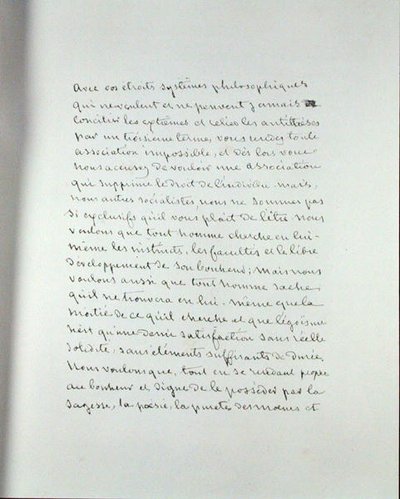 Avec vos étroits systèmes philosophiques
qui ne veulent et ne peuvent jamais
concilier les extrêmes et relier les antithèses
par un troisième terme, vous rendez toute
association impossible, et dès lors vous
nous accusez de vouloir une association
qui supprime le droit de l'individu. Mais,
nous autres socialistes, nous ne sommes pas
si exclusifs qu'il vous plait de l'être. Nous
voulons que tout homme cherche en lui-
même les instincts, les facultés et le libre
développement de son bonheur; mais nous
voulons aussi que tout homme sache
qu'il ne trouvera en lui-même que la
moitié de ce qu'il cherche et que l'égoïsme
n'est qu'une demie satisfaction sans réelle
solidité, sans éléments suffisants de durée.
Nous voulons que, tout en se rendant propre
au bonheur et digne de le posséder par la
sagesse, la poésie, la pureté des mœurs et